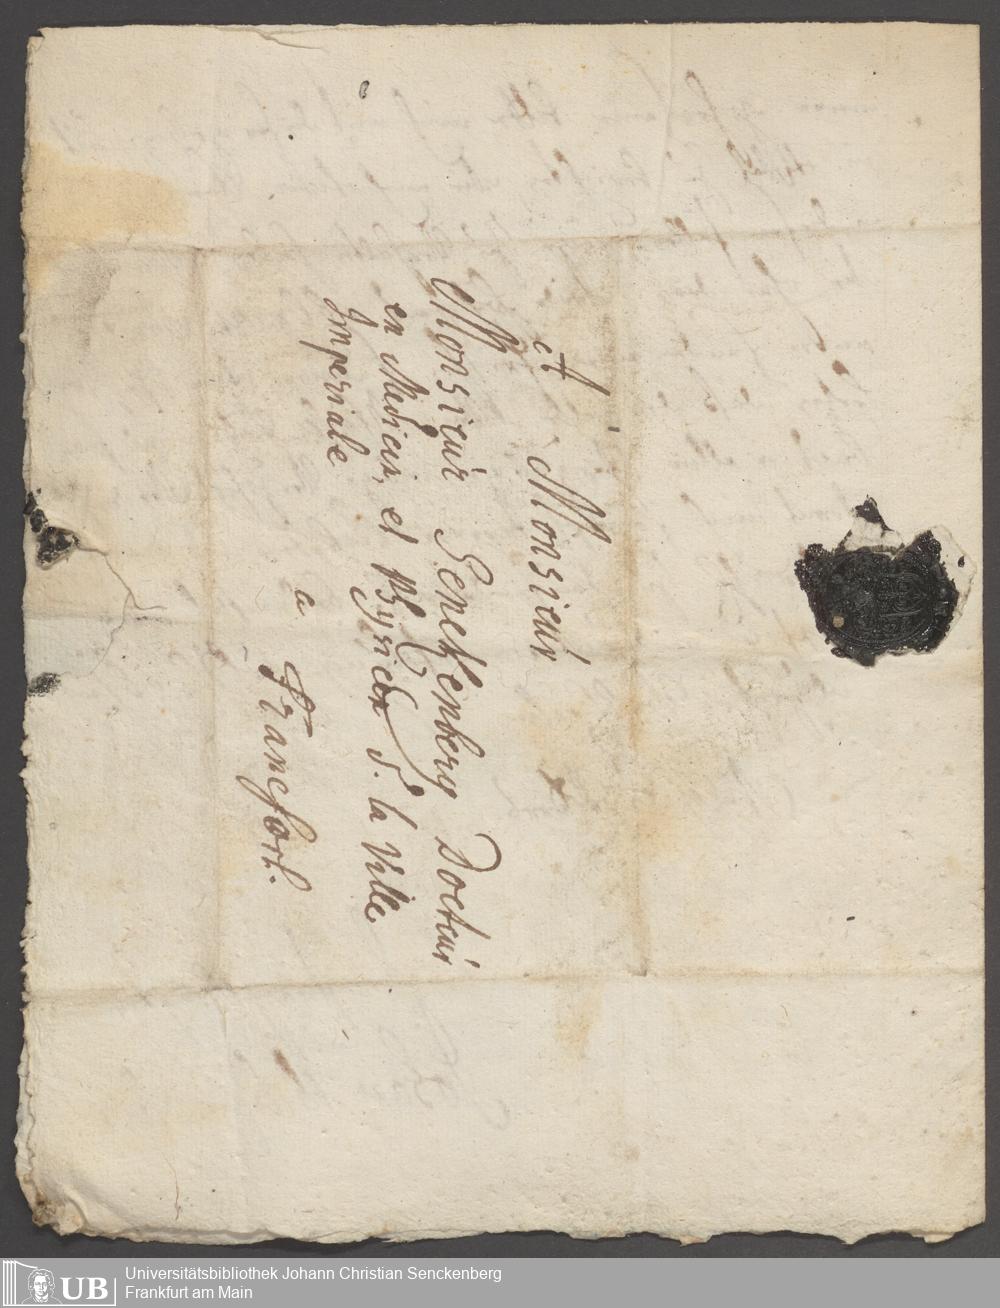 à Monsieur
Monsieur Senckenberg Docteur
en Medicin, et Physicien d. la Ville
Imperiale
a Francfort.
UB
Universitätsbibliothek Johann Christian Senckenberg
Frankfurt am Main